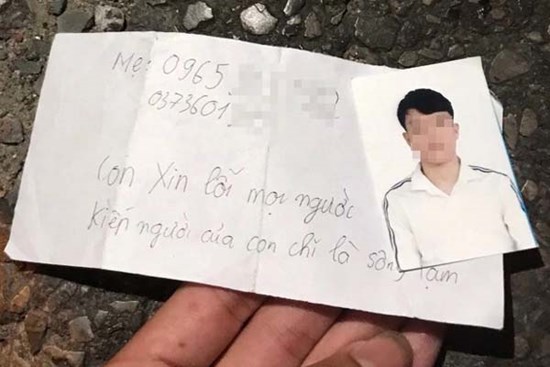 Mẹ: 0965
0373601
Con Xin lỗi mọi người
kiếp người của con chỉ là sống tạm